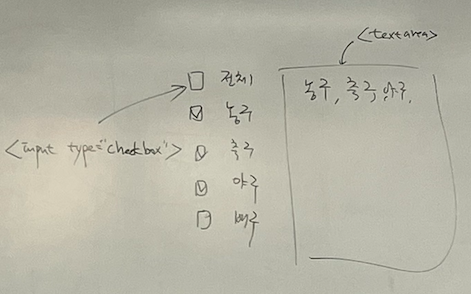 <textarea>
전체
농구, 축구, 야구,
농구
<input type="checkbox">
축구
야구
배구